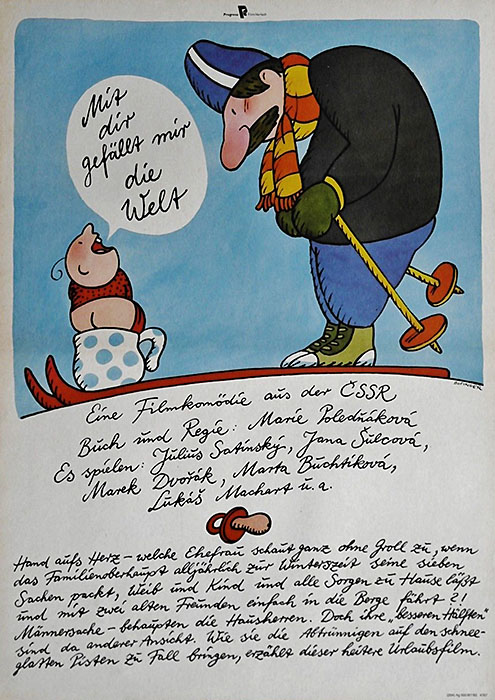 Progress
Mit
dir
gefällt mir
die
Welt
Eine Filmkomödie aus der ČSSR
Buch und Regie: Marie Poledňáková
Es spielen: Július Satinský, Jana Šulcová,
Marek Dvořák, Marta Buchtíková,
Lukáš Machart u. a.
Hand aufs Herz – welche Ehefrau schaut ganz ohne Groll zu, wenn
das Familienoberhaupt alljährlich zur Winterzeit seine sieben
Sachen packt, Weib und Kind und alle Sorgen zu Hause läßt
und mit zwei alten Freunden einfach in die Berge fährt?!
Männersache – behaupten die Hausherren. Doch ihre „besseren Hälften"
sind da anderer Ansicht. Wie sie die Abtrünnigen auf den schnee-
glatten Pisten zu Fall bringen, erzählt dieser heitere Urlaubsfilm.